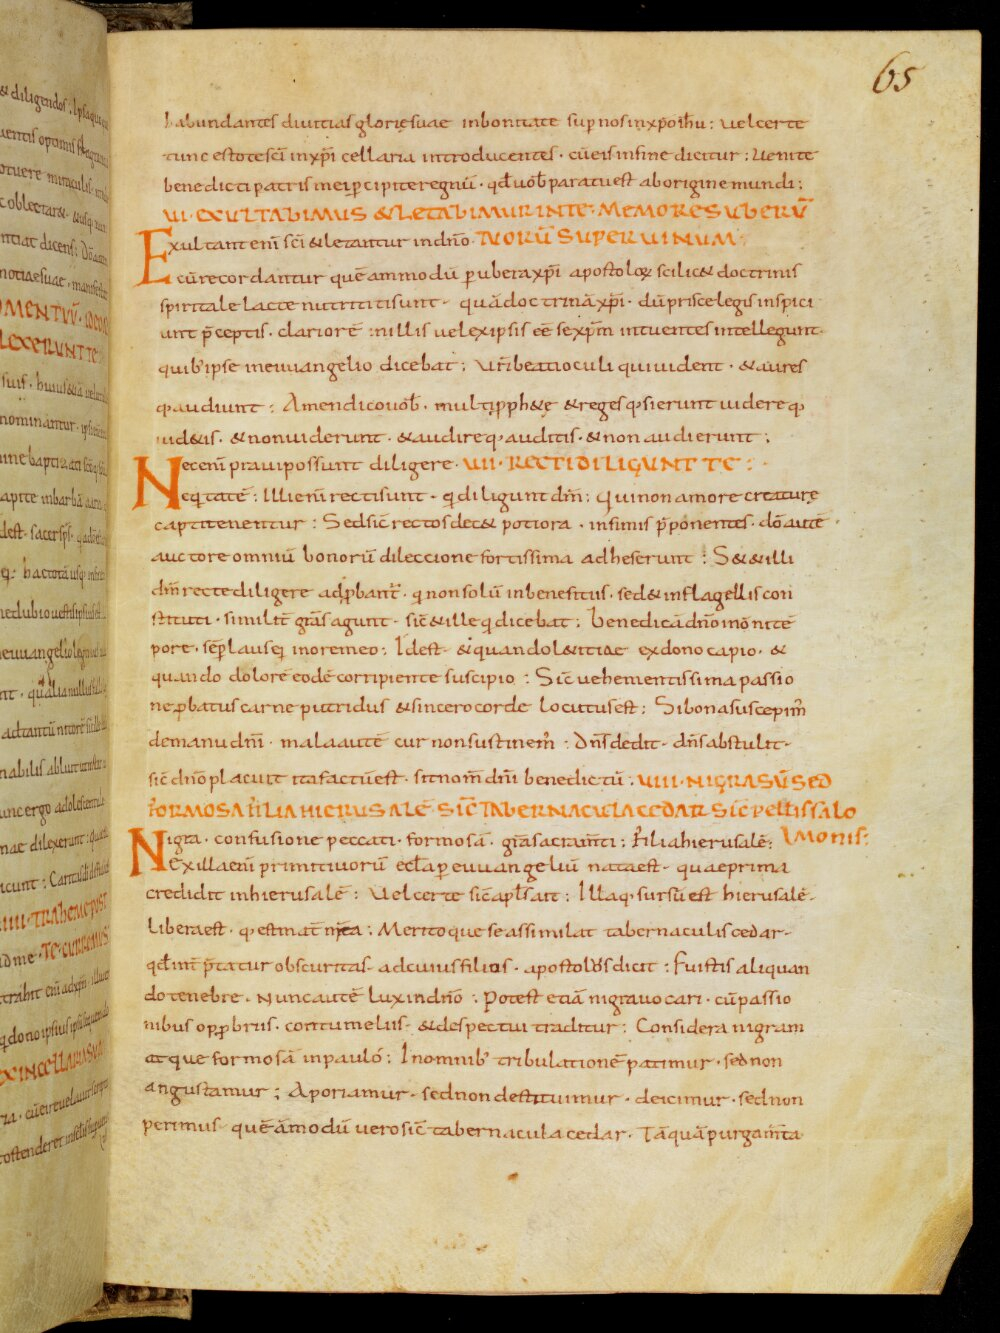 65
habundantes diuitias glorięsuae inbonitate sup nos inxp̄o ih̄u : uelcerte
tunc estote sc̄i inxp̄i cellaria introducentes · cū eis infine dicitur : Uenite
benedicti patris mei p̱cipite regnū · qđ uob̄ paratu est aborigine mundi ;
VI · EXULTABIMUS & LETABIMUR INTE · MEMORES UBERŪ
Exultant enī sc̄i & letantur indn̄o · TUORŪ SUPER UINUM ·
E cū recordantur quē ammodū p̱ ubera xp̄i apostoloꝝ scilic& doctrinis
spiritale lacte nutriti sunt · quā doctrinā xp̄i · dū prisce legis inspici
unt p̄ceptis · clariorē in illis uel exipsis eē sexp̄m intuentes intellegunt ·
quib' ipse in euuangelio dicebat ; Ur̄i beati oculi qui uident · & aures
q̨ audiunt : Amen dico uob̄ · multi p̱ph&ę & reges q̨sierunt uidere q̨
uid&is · & non uiderunt · & audire q̨ auditis · & non audierunt ;
Nec enī praui possunt diligere · VII · RECTI DILIGUNT TE :
Neq̨ tatē : Illi enī recti sunt · q̨ diligunt dm̄ ; Qui non amore creaturę
capti tenentur : Sed sic̄ rectos dec& potiora · infimis p̄ponentes · dō autē ·
auctore omniū bonorū dileccione fortissima adheserunt : S& & illi
dm̄ recte diligere adp̱bant̄ · q̨ non solū inbeneficiis · sed & inflagellis con
stituti · similit̄ gr̄as agunt · sic̄ & ille q̨ dicebat ; Benedicā dn̄o in om̄i tē
pore · sēp̱ laus eiꝰ in ore meo : Id est · & quando l&itiae ex dono capio · &
quando dolorē eodē corripiente suscipio : Sic̄ uehementissima passio
ne p̱batus carne putridus & sincero corde locutus est ; Si bona suscepim̄
de manu dn̄i · mala autē cur non sustinem̄ : Dn̄s dedit · dn̄s abstulit ·
sic̄ dn̄o placuit ita factū est · sit nom̄ dn̄i benedictū : VIII · NIGRA SŪ SED
FORMOSA FILIA HIERUSALĒ · SIC̄ TABERNACULA CEDAR SIC̄ PELLIS SALO
Nigra · confusione peccati · formosā gr̄a sacram̄ti : filia hierusalē ; MONIS :
N Ex illa enī primitiuorū ecl̄a p̱ euuangeliū nata est · quae prima
credidit in hierusalē : Uel certe sic̄ apl̄s ait : Illa q̨ sursū est hierusalē ·
libera est · q̨ est mat̄ nr̄ea ; Merito que se assimilat tabernaculis cedar ·
qđ int̄p̄tatur obscuritas · ad cuius filios · apostolus dicit : Fuistis aliquan
do tenebre · Nunc autē lux in dn̄o : Potest etiā nigra uocari · cū passio
nibus opp̱briis · contumeliis · & despectui traditur : Considera nigram
atque formosā in pauló : In omnib' tribulationē patimur · sed non
angustamur ; Aporiamur · sed non destituimur · deicimur · sed non
perimus · quē āmodū uero sic̄ tabernacula cedar · Tā quā purgam̄ta